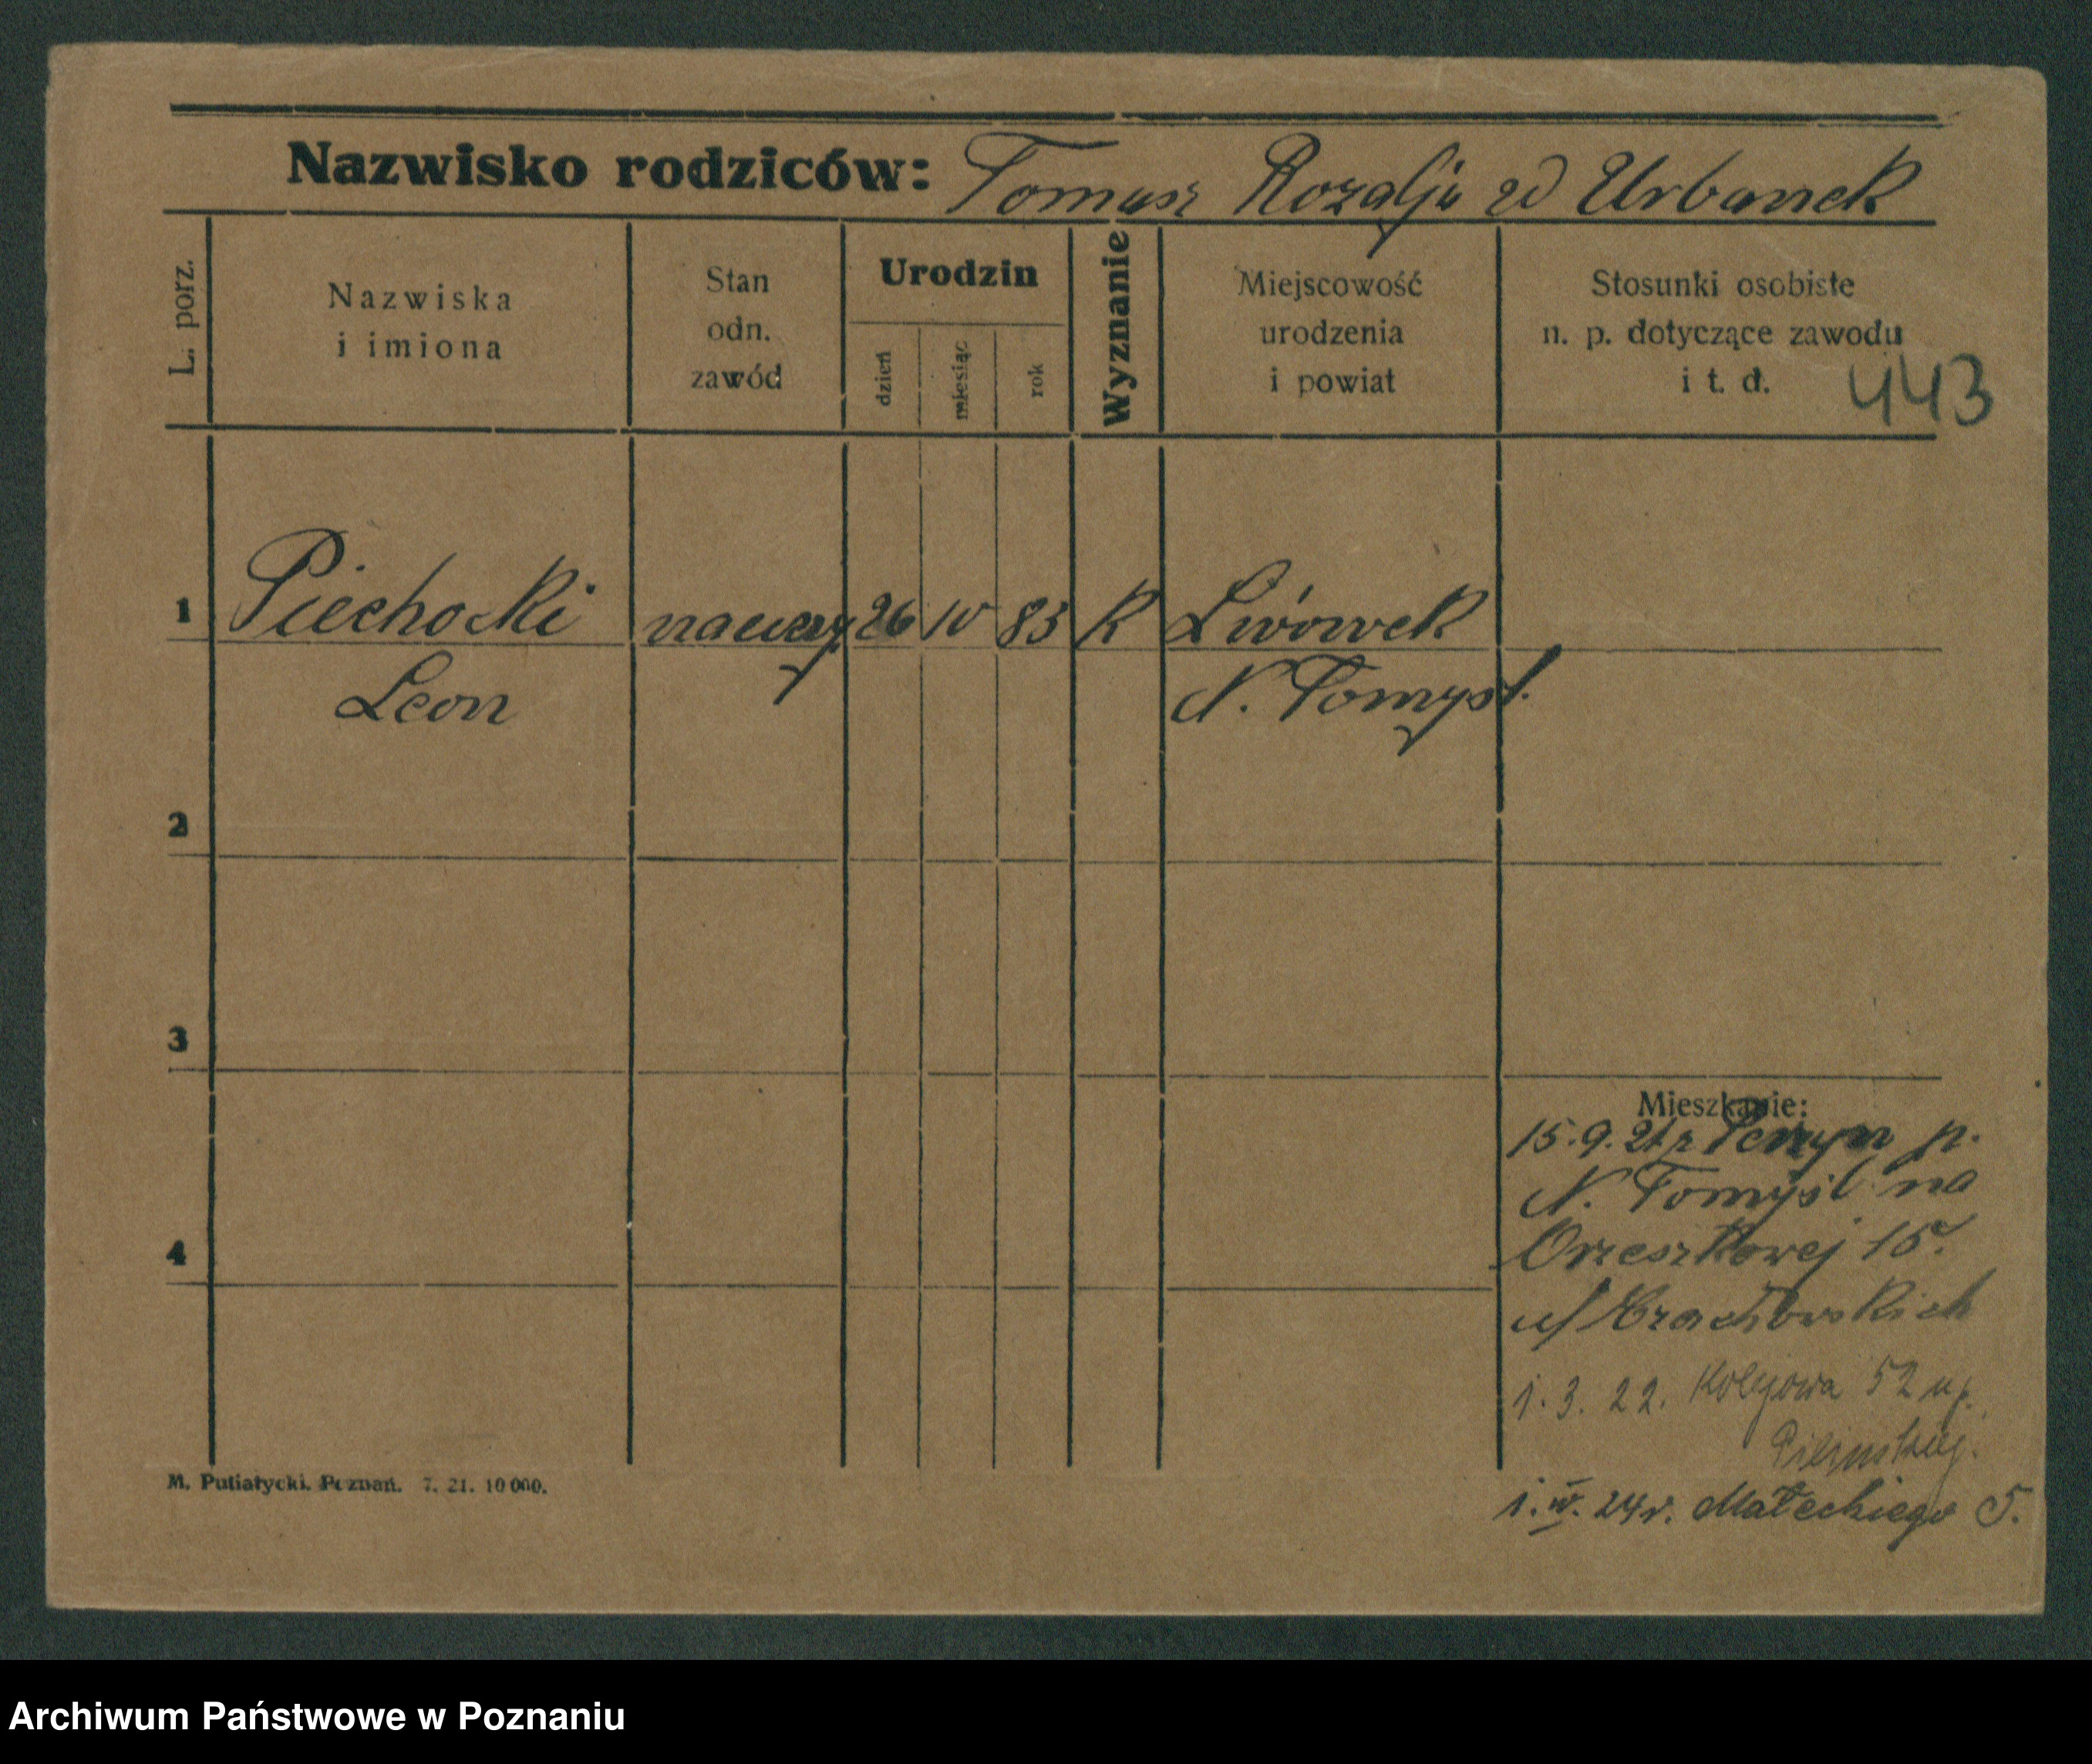 Nazwisko rodziców: Tomasz Rozalja zd Urbanek
L. porz.
Nazwiska
i imiona
Stan
odn.
zawód
Urodzin
dzień
miesiąc
rok
Wyznanie
Miejscowość
urodzenia
i powiat
Stosunki osobiste
n. p. dotyczące zawodu
i t. d.
443
1 Piechocki nauczy 26 IV 83 K Lwówek
Leon N. Tomyśl.
2
3
Mieszkanie:
15.9.21 r p.
N. Tomyśl na
4 Orzeszkowej 15.
u/
1.3.22. Kolejowa 52 u p.
1.IV.24r. Małeckiego 5.
M. Putiatycki. Poznań. 7. 21. 10 000.
Archiwum Państwowe w Poznaniu